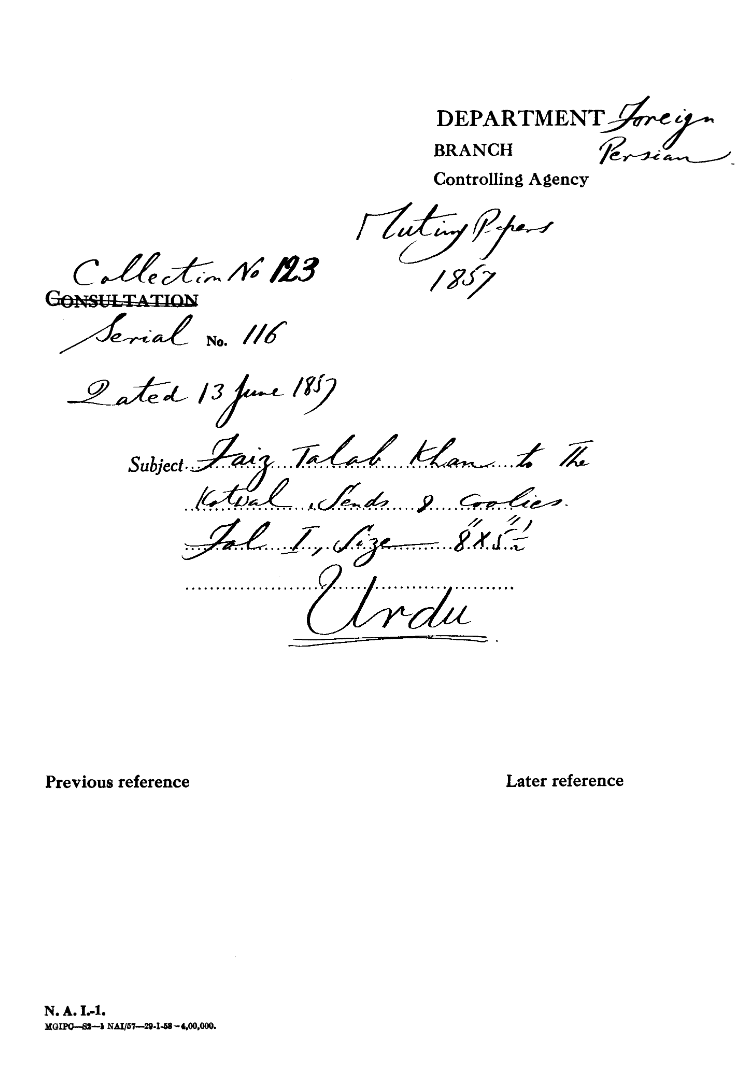 DEPARTMENT Foreign
BRANCH Persian
Controlling Agency
Mutiny Papers
1857
Collection No 123
CONSULTATION
Serial No. 116
Dated 13 June 1857
Subject Faiz Talab Khan to the
Kotwal, Sends 8 coolies.
Fol. I, Size 8"X5"½
Urdu
Previous reference
Later reference
N. A. I.-1.
MGIPC—S2—1 NAI/57—29-1-58—4,00,000.